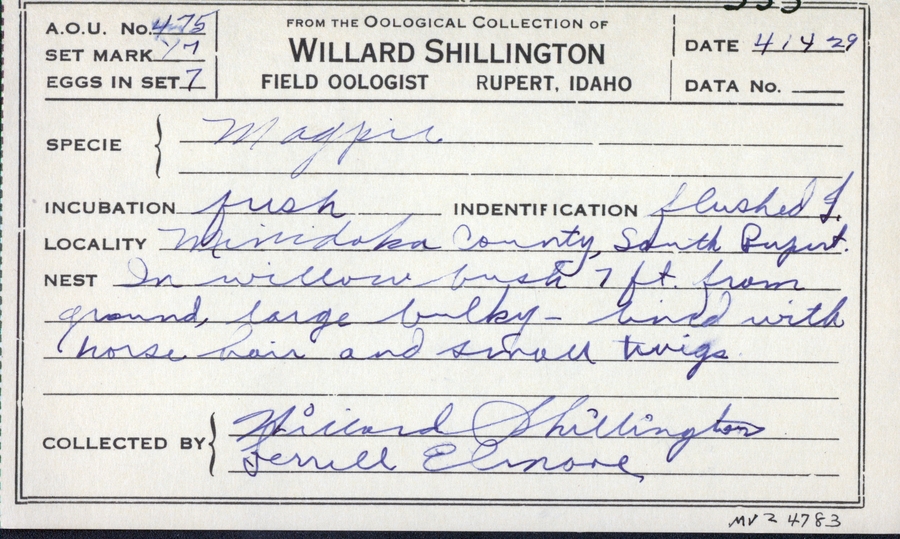 A.O.U. No. 475
SET MARK 1/7
EGGS IN SET 7
FROM THE OOLOGICAL COLLECTION OF
WILLARD SHILLINGTON
FIELD OOLOGIST RUPERT, IDAHO
DATE 4 14 29
DATA No.
SPECIE Magpie
INCUBATION fresh INDENTIFICATION flushed
LOCALITY Minidoka County, South Rupert.
NEST In willow bush 7 ft. from
ground, large bulky - lined with
horse hair and small twigs
COLLECTED BY Willard Shillington
Jerrill Elmore
MVZ 4783